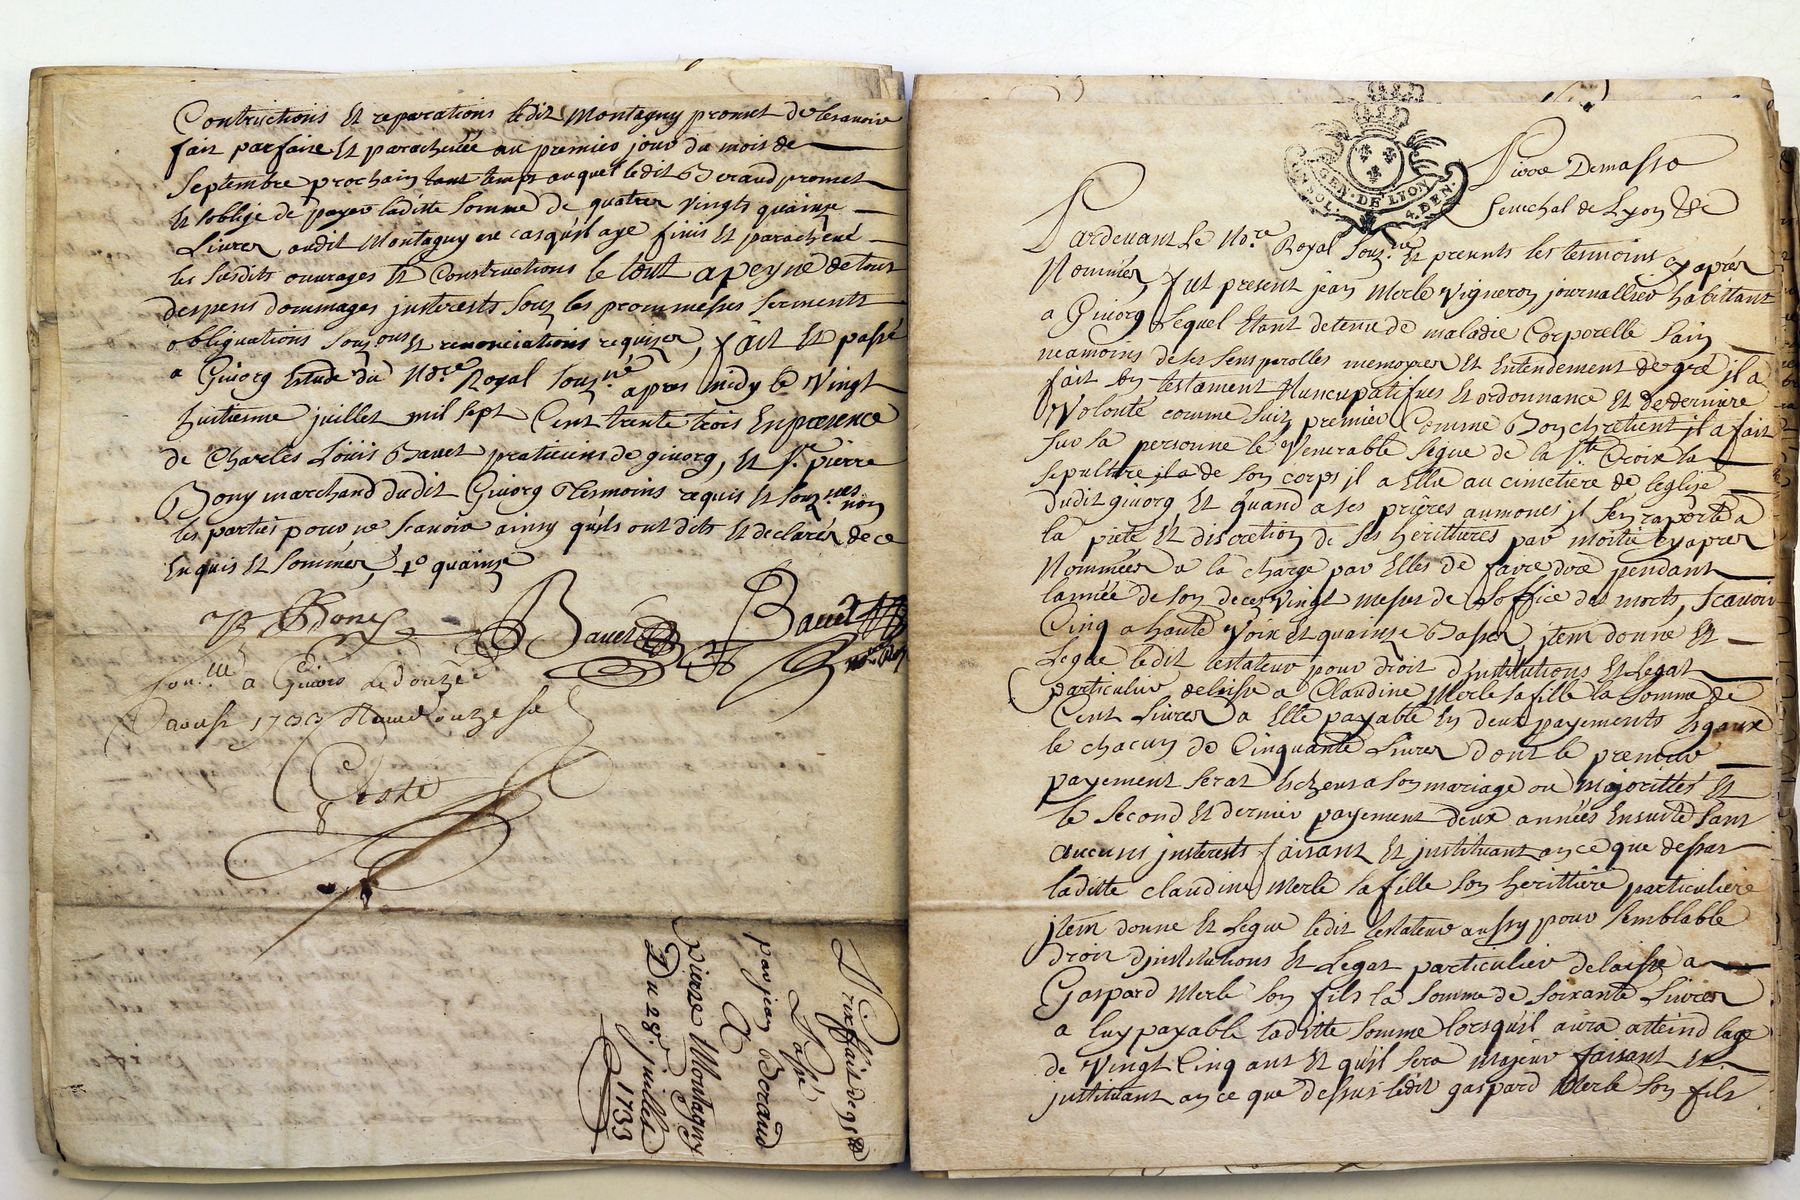 Contructions Et reparations ledit Montagny promet de les avoir
fait parfaire Et parachevée au premier jour du mois de
Septembre prochain tant temps auquel ledit Beraud promet
Et soblige de payer laditte somme de quatre vingts quainze
Livres audit Montagny en cas qu'il aye finis Et parachevé
les susdits ouvrages Et Constructions le tout a peyne de tous
despens dommages justerests sous les prommesses serments
obliguations soumons Et renonciations requises, fait Et passé
a Givorg Estude du Nore Royal souzné apres midy le Vingt
huitieme juillet mil sept Cent trente trois En presence
de Charles Loüis Bavet praticiens de givorg, Et Sr pierre
Bony marchand dudit Givorg Tesmoins requis Et souznés non
les parties pour ne scavoir ainsy qu'ils ont dits Et declarés de ce
Enquis Et sommés, qo quainze
P Bony Bavet Bavet
nore Roy
a Givors le douze
aoust 1733 Receu onze s
Coste
Prixffait de 95
Passé
par jean Beraud
A
Pierre Montagny
Du 28e juillet
1733
GEN. DE LYON
4. DEN.
Pierre Demasso
Senechal de Lyon &c
Pardevant Le Nore Royal souzné Et presents les tesmoins cy aprés
Nommés, fut present jean Merle Vigneron journallier habittant
a Givorg Lequel Etant detenu de maladie Corporelle sain
neamoins de ses sens parolles memoyres Et Entendement de gré il a
fait son testament Nuncupatif Et ordonnance Et de derniere
Volonté comme suit, premier Comme Bon chretient il a fait
sur sa personne le Venerable signe de la Ste Croix la
sepulture de son corps il a Elu au cimetiere de leglise
dudit givorg, Et quand a ses prieres aumones il sen raporte a
la pieté Et discretion de ses herittieres par moitié cy apres
Nommées a la charge par Elles de faire dire pendant
lannée de son deces Vingt messes de l'office des morts, scavoir
Cinq a haute Voix Et quainze Basses, jtem donne Et
Legue ledit testateur pour droit d'jnstitutions Et Legat
particulier delaisse a Claudine Merle sa fille la somme de
Cent Livres a Elle payable En deux payements Egaux
le chacun de Cinquante Livres dont le premier
payement serat Escheu a son mariage ou Majorittés Et
le second Et dernier payement deux années Ensuitte sans
aucuns justerests faisant Et jnstituant en ce que dessus
laditte claudine Merle sa fille son herittiere particuliere
jtem donne Et Legue ledit testateur aussy pour semblable
droit d'jnstitutions Et Legat particulier delaisse a
Gaspard Merle son fils la somme de soixante Livres
a luy payable laditte somme lorsqu'il aura atteind lage
de Vingt Cinq ans Et qu'il sera Majeur faisant Et
jnstituant en ce que dessus ledit gaspard Merle son fils